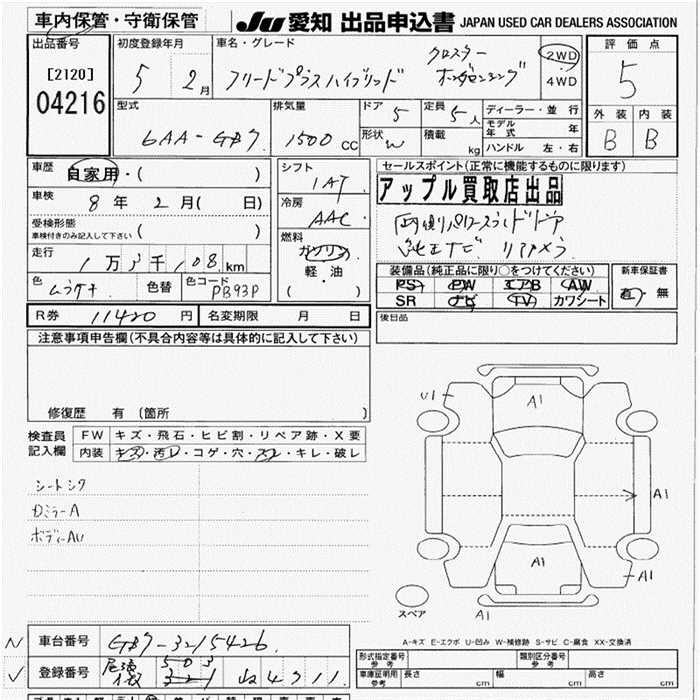 車内保管・守衛保管
JU 愛知 出品申込書 JAPAN USED CAR DEALERS ASSOCIATION
出品番号 初度登録年月 車名・グレード 評価点
[2120]
04216
5 2月
フリードプラスハイブリッド
クロスター
ホンダセンシング
2WD
4WD
5
型式 排気量 ドア 定員 ディーラー・並行
6AA-GB7. 1500 CC 5 5人
モデル年式 年
形状 W 積載 kg ハンドル 左・右
外装 内装
B B
車歴 自家用・( )
車検 8年 2月( 日)
受検形態 ( )
車検付きのみ記入して下さい
走行 1万3千108km
色 色替 色コード PB93P
シフト
1AT
冷房
AAC
燃料
ガソリン
軽・油
( ・ )
セールスポイント(正常に機能するものに限ります)
アップル買取店出品
両側パワースライドドア
純正ナビ リアカメラ
装備品(純正品に限り○をつけてください) 新車保証書
PS PW エアB AW
SR ナビ TV カワシート
有・無
R券 11420円 名変期限 月 日
後日品
注意事項申告欄(不具合内容等は具体的に記入して下さい)
修復歴 有(箇所 )
検査員記入欄
FW キズ・飛石・ヒビ割・リペア跡・X要
内装 キズ・汚レ・コゲ・穴・スレ・キレ・破レ
シートシワ
ボディーAU
U1
A1
A1
A1
A1
A1
スペア
A-キズ E-エクボ U-凹み W-補修跡 S-サビ C-腐食 XX-交換済
車台番号 GB7-3215426
登録番号
形式指定番号 参考 類別区分番号 参考
車庫証明用 参考 長さ cm 幅 cm 高さ cm